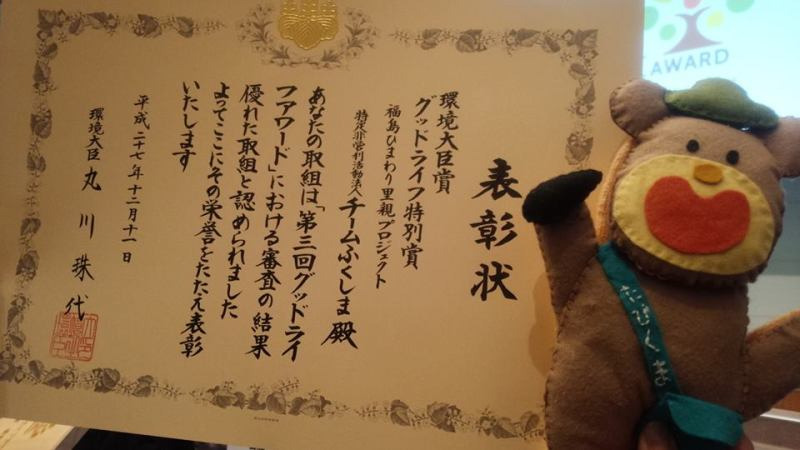 表彰状
環境大臣賞
グッドライフ特別賞
福島ひまわり里親プロジェクト
特定非営利活動法人 チームふくしま 殿
あなたの取組は「第三回グッドライ
フアワード」における審査の結果
優れた取組と認められました
よってここにその栄誉をたたえ表彰
いたします
平成二十七年十二月十一日
環境大臣 丸川珠代
AWARD
たびくま